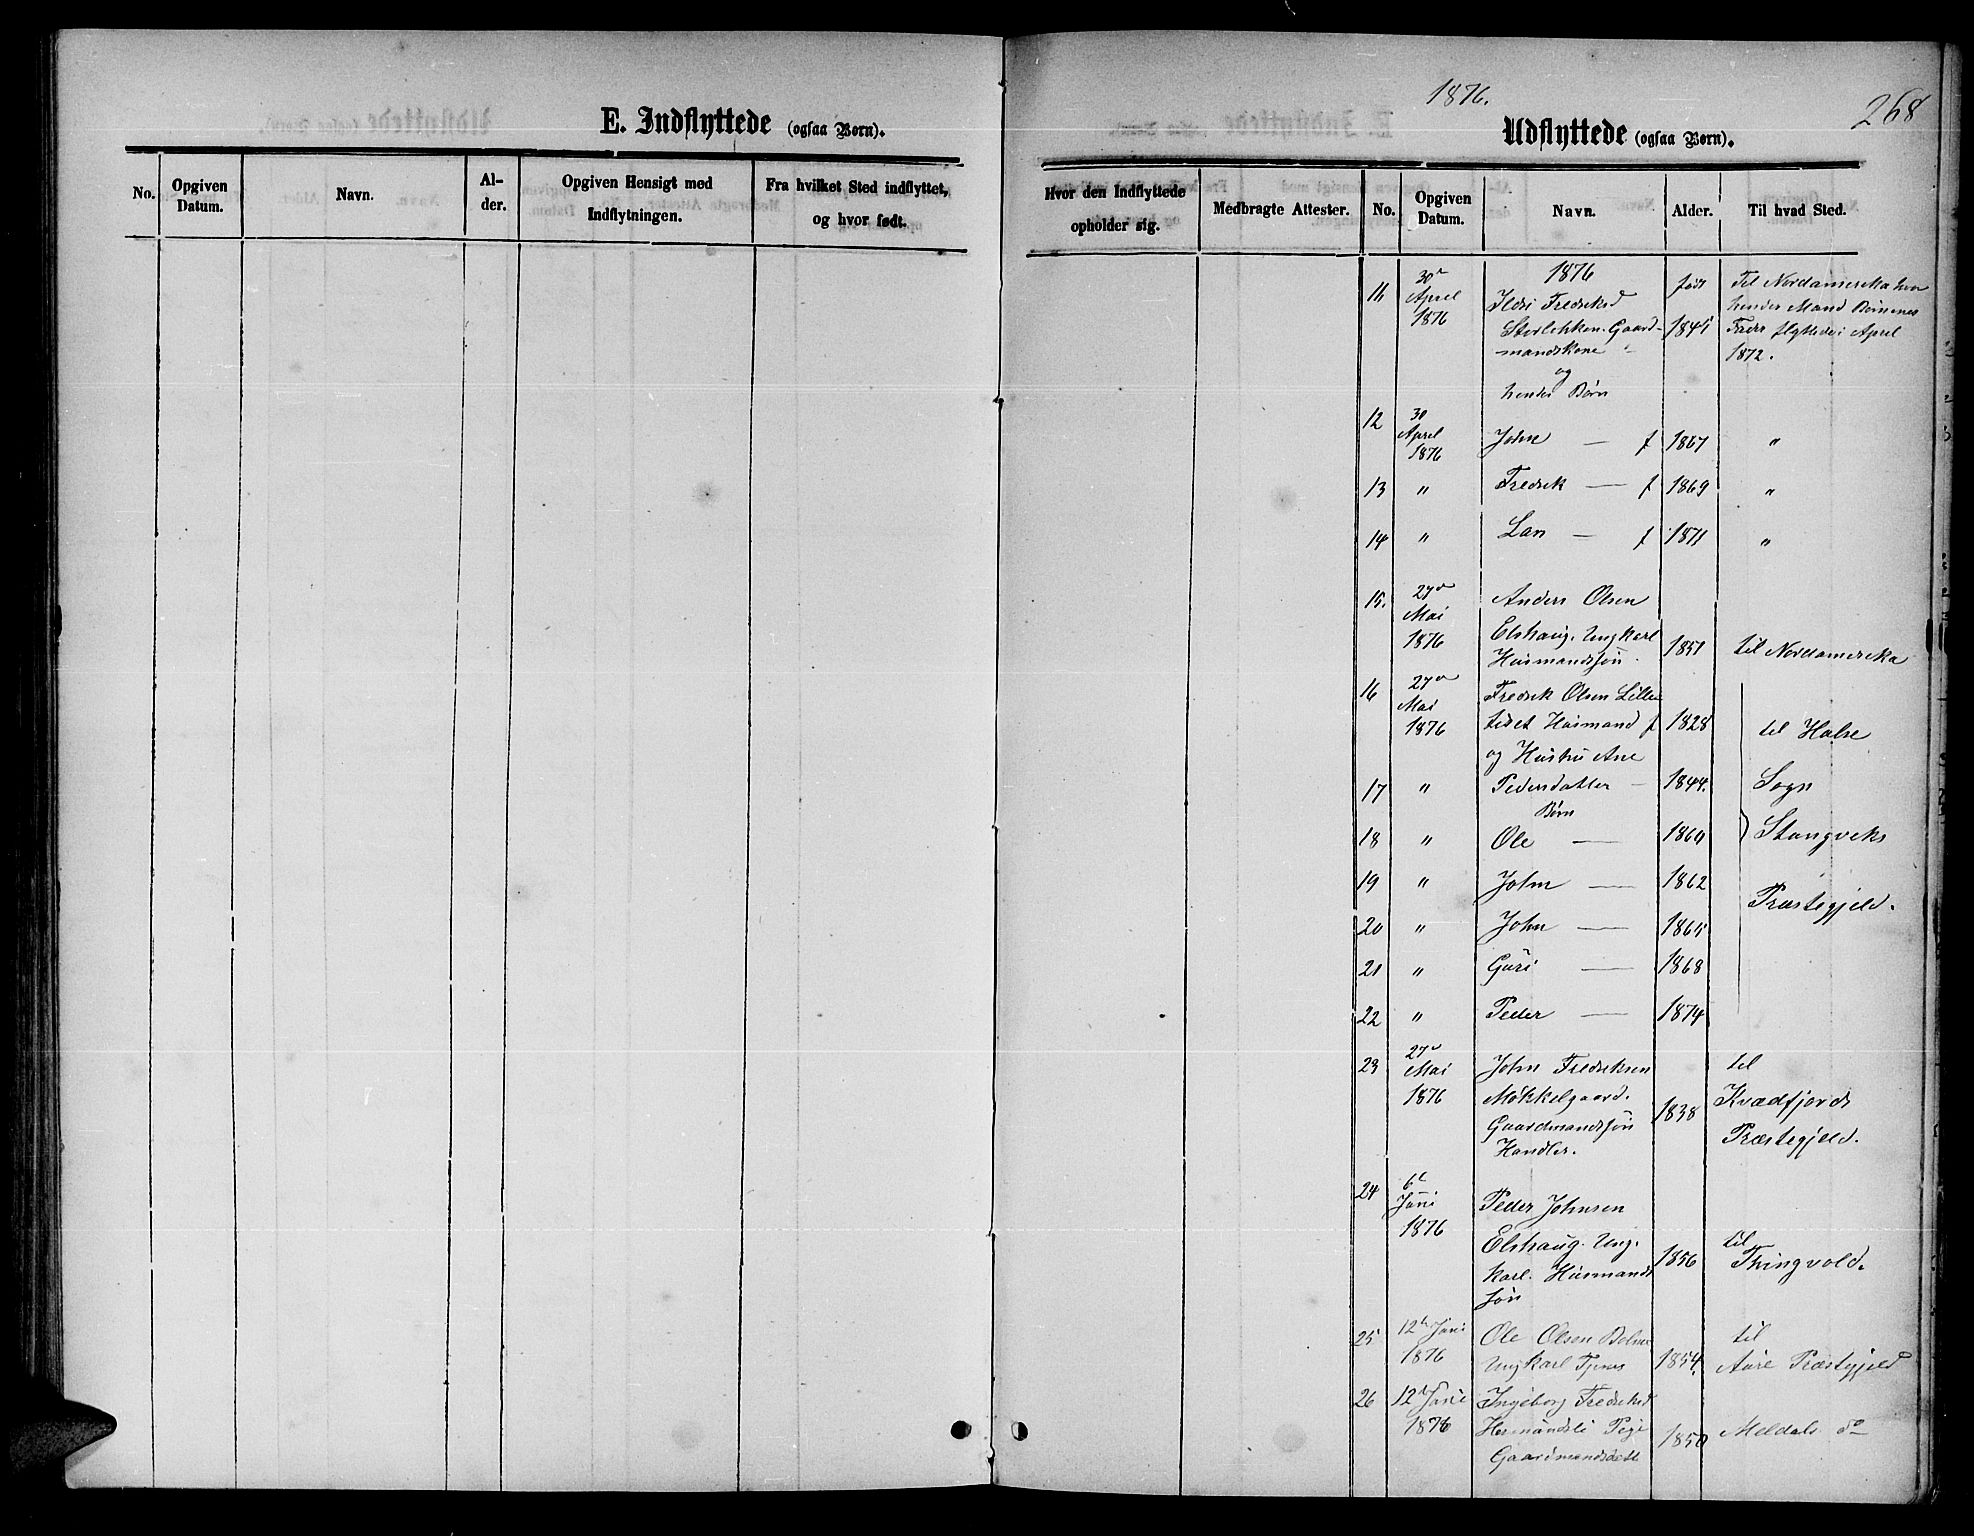 E. Indflyttede (ogsaa Børn).
No.
Opgiven Datum.
Navn.
Al-
der.
Opgiven Hensigt med
Indflytningen.
Fra hvilket Sted indflyttet,
og hvor født.
1876.
268
Udflyttede (ogsaa Børn).
Hvor den Indflyttede
opholder sig.
Medbragte Attester.
No.
Opgiven
Datum.
Navn.
Alder.
Til hvad Sted.
1876
11 30 April 1876 Ildri Fredriksd født Til Nordamerika hvor
Gaard- 1845 hendes Mand Børnenes
mandskone Fader flyttede i April
og 1872.
hendes Børn
12 30 April 1876 John — f 1867 "
13 " Fredrik — f 1869 "
14 " Lars — f 1871 "
15. 27de Mai 1876 Anders Olsen
Elshaug. Ungkarl
Husmandssøn. 1851 til Nordamerika
16 27de Mai 1876 Fredrik Olsen Lille
Husmand f 1828 til Halse
og Hustru Ane
17 " Pedersdatter — 1844. Sogn
Børn
18 " Ole — 1860 Stangviks
19 " John — 1862
Præstegjeld.
20 " John — 1865
21 " Guri — 1868
22 " Peder — 1874
23 27de Mai 1876 John Fredriksen til
Møkkelgaard. Kvædfjords
Gaardmandssøn 1838 Præstegjeld.
Handler.
24 6te Juni 1876 Peder Johnsen
Elshaug. Ung- til
karl. Husmands 1856 Thingvold.
søn
25 12te Juni 1876 Ole Olsen Bolme til
Ungkarl Tjenes 1854. Aure Præstegjeld
26 12te Juni 1876 Ingeborg Fredriksd
Pige 1850 Meldals do
Gaardmandsdatt